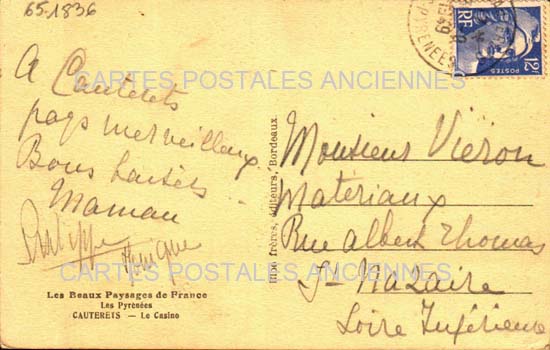 65-1836
A Cauterets
pays merveilleux
Bons baisers
Maman
Philippe
Monique
Les Beaux Paysages de France
Les Pyrénées
CAUTERETS — Le Casino
frères, éditeurs, Bordeaux
PYRENEES
RF
12F
POSTES
Monsieur Viéron
Matériaux
Rue Albert Thomas
St-Nazaire
Loire Inférieure
CARTES POSTALES ANCIENNES
CARTES POSTALES ANCIENNES